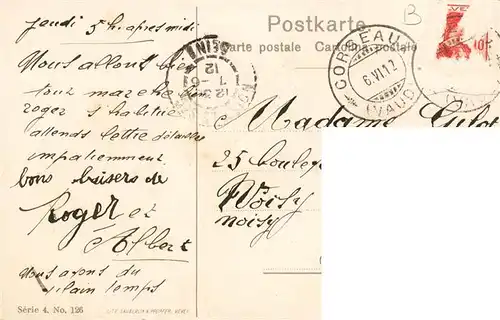 Postkarte
Carte postale Cartolina postale
jeudi 5 h. apres midi
Nous allons bien
tout marche bien
roger s habitue
attends lettre détaillée
impatiemment.
bons baisers de
Roger et
Albert
Nous avons du
vilain temps
Série 4. No. 126
B
CORSEAUX
6.VI.12
(VAUD)
SEINE
12
Madame
25 boulevard
Noisy
noisy